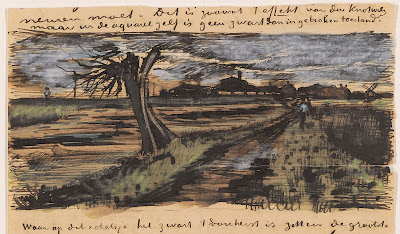 nemen moet. Dit is zoowat 't effekt van den Knotwilg
maar in de aquarel zelf is geen zwart dan in gebroken toestand.
Vincent
Waar op dit schetsje het zwart 't donkerst is zitten de grootste